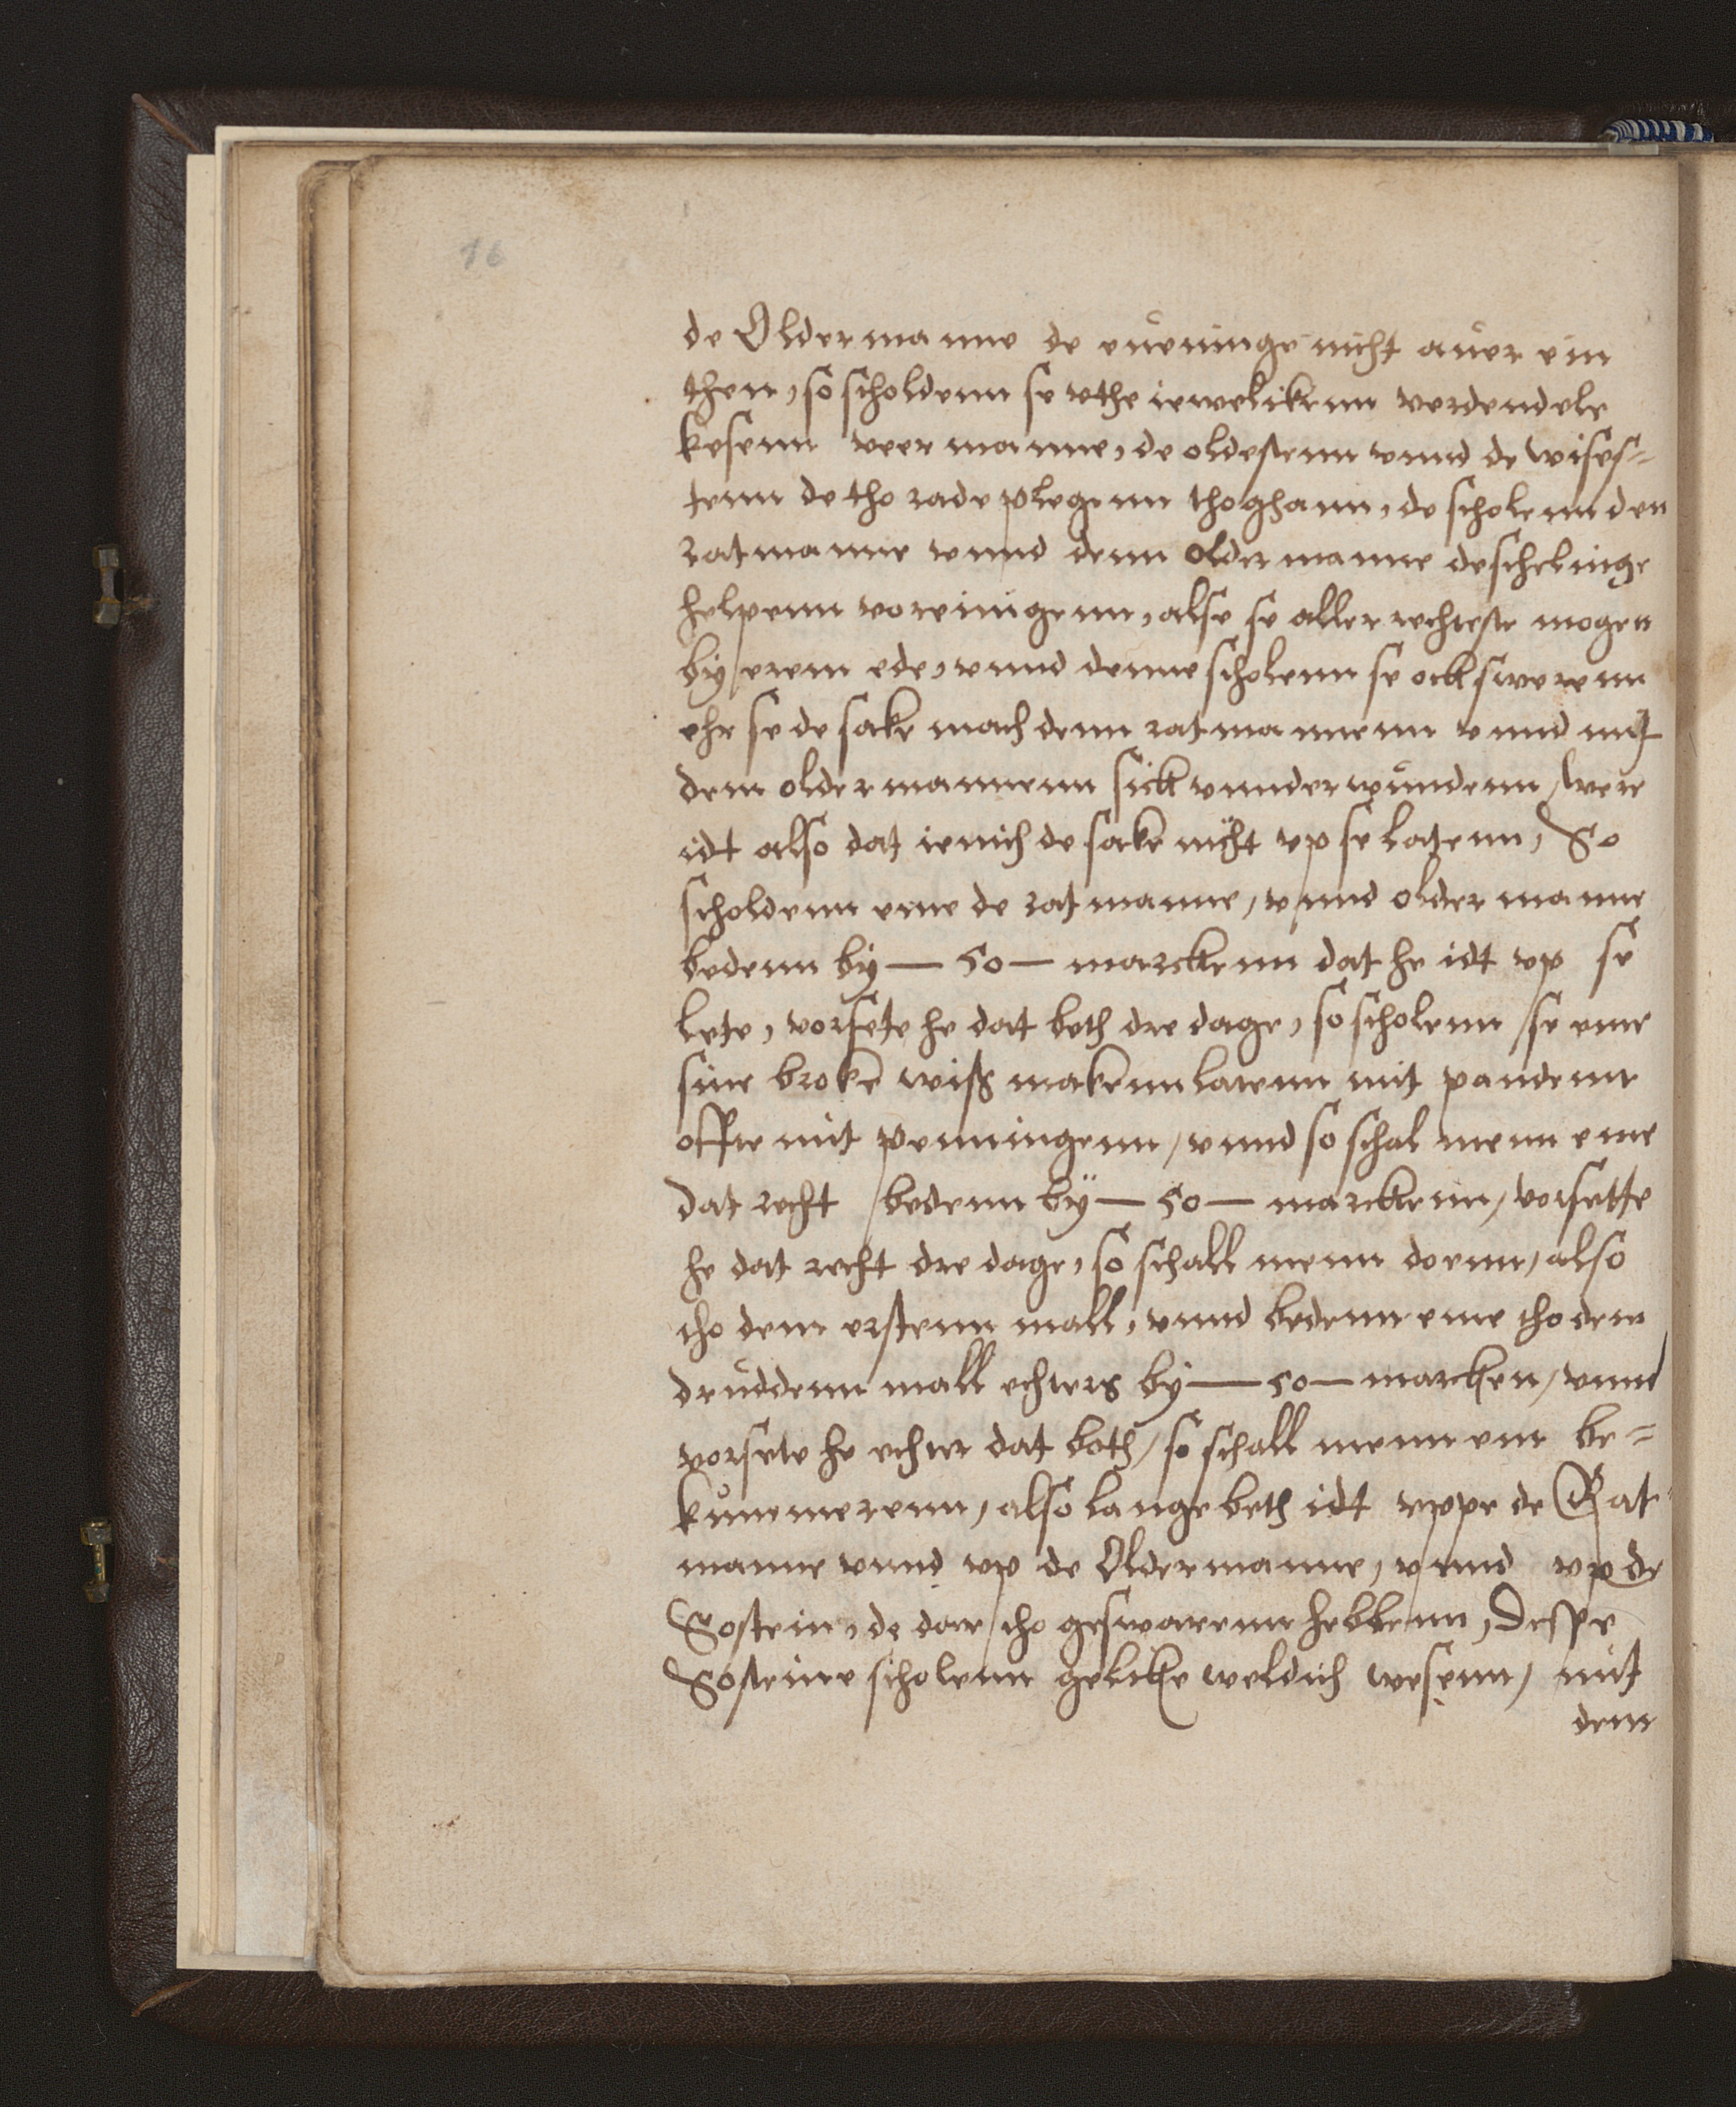 16
de Oldermanne de eueninge nicht auer ein
then, so scholdenn se vthe iewelikenn verdendele
kesenn veer manne, de oldestenn vnnd de wises-
tenn de tho rade plegenn thoghann, de scholenn den
ratmanne vnnd denn oldermanne deschelinge
helpenn voreinigenn, alse se aller rechteste mogen
by erem ede, vnnd denne scholenn se ock swerenn
ehr se de sake mach denn ratmannenn vnnd mit
dem oldermannenn sick vnnderwundenn, were
idt also dat iemich de sake nicht vp se latenn, So
scholdenn eme de ratmanne, vnnd oldermanne
bedenn by — 50 — marckenn dat he idt vp se
lete, vorsete he dat beth dre dage, so scholenn se eme
sine broke wiss makenn latenn mit pandenn
offte mit penningenn, vnnd so schal menn eme
dat recht bedenn bÿ — 50 — marckenn, vorsette
he dat recht dre dage, so schall menn doenn, also
tho dem erstenn mall, vnnd bedenn eme tho dem
druddenn mall echters by — 50 — marcken, vnnd
vorsete he echter dat both, so schall menn em be-
kummerenn, also lange beth idt vppe de Rat
manne vnnd vp de Oldermanne, vnnd vp de
Sostein, de dar tho geswarenn hebbenn, Desse
Sosteine scholenn gelicke weldich wesenn, mit
dem